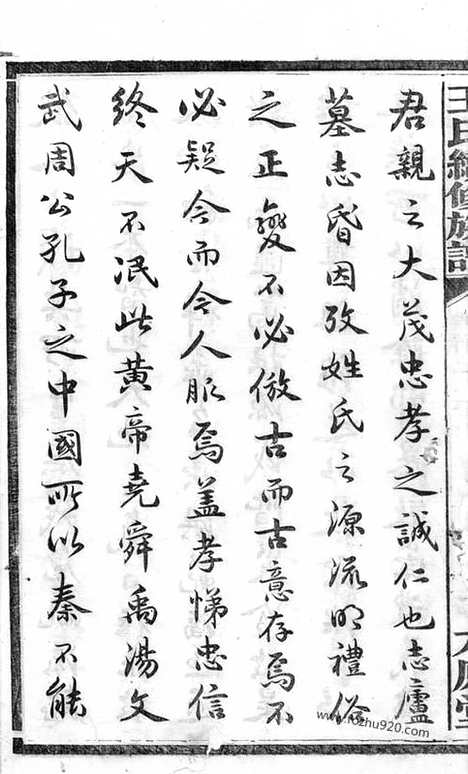 王氏續修族譜
君親之大茂忠孝之誠仁也志廬
墓志昏因攷姓氏之源流明禮俗
之正變不必倣古而古意存焉不
必疑今而今人服焉蓋孝悌忠信
終天不泯此黃帝堯舜禹湯文
武周公孔子之中國所以秦不能